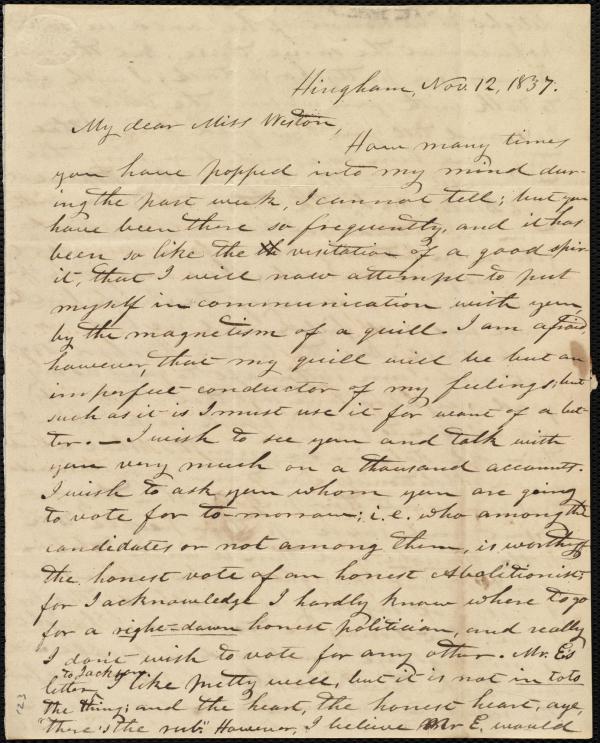 Hingham, Nov. 12, 1837.
My dear Miss Weston,
How many times
you have popped into my mind dur-
ing the past week, I cannot tell; but you
have been there so frequently, and it has
been so like the visitation of a good spir-
it, that I will now attempt to put
myself in communication with you,
by the magnetism of a quill. I am afraid,
however, that my quill will be but an
imperfect conductor of my feelings; but
such as it is I must use it for want of a bet-
ter. — I wish to see you and talk with
you very much on a thousand accounts.
I wish to ask you whom you are going
to vote for to-morrow; i.e. who among the
candidates or not among them, is worthy of
the honest vote of an honest Abolitionist;
for I acknowledge I hardly know where to go
for a right-down honest politician, and really
I don't wish to vote for any other. Mr. E's
to Jackson.
letter I like pretty well, but it is not in toto
the thing; and the heart, the honest heart, aye,
"there's the rub." However, I believe Mr E. would
123